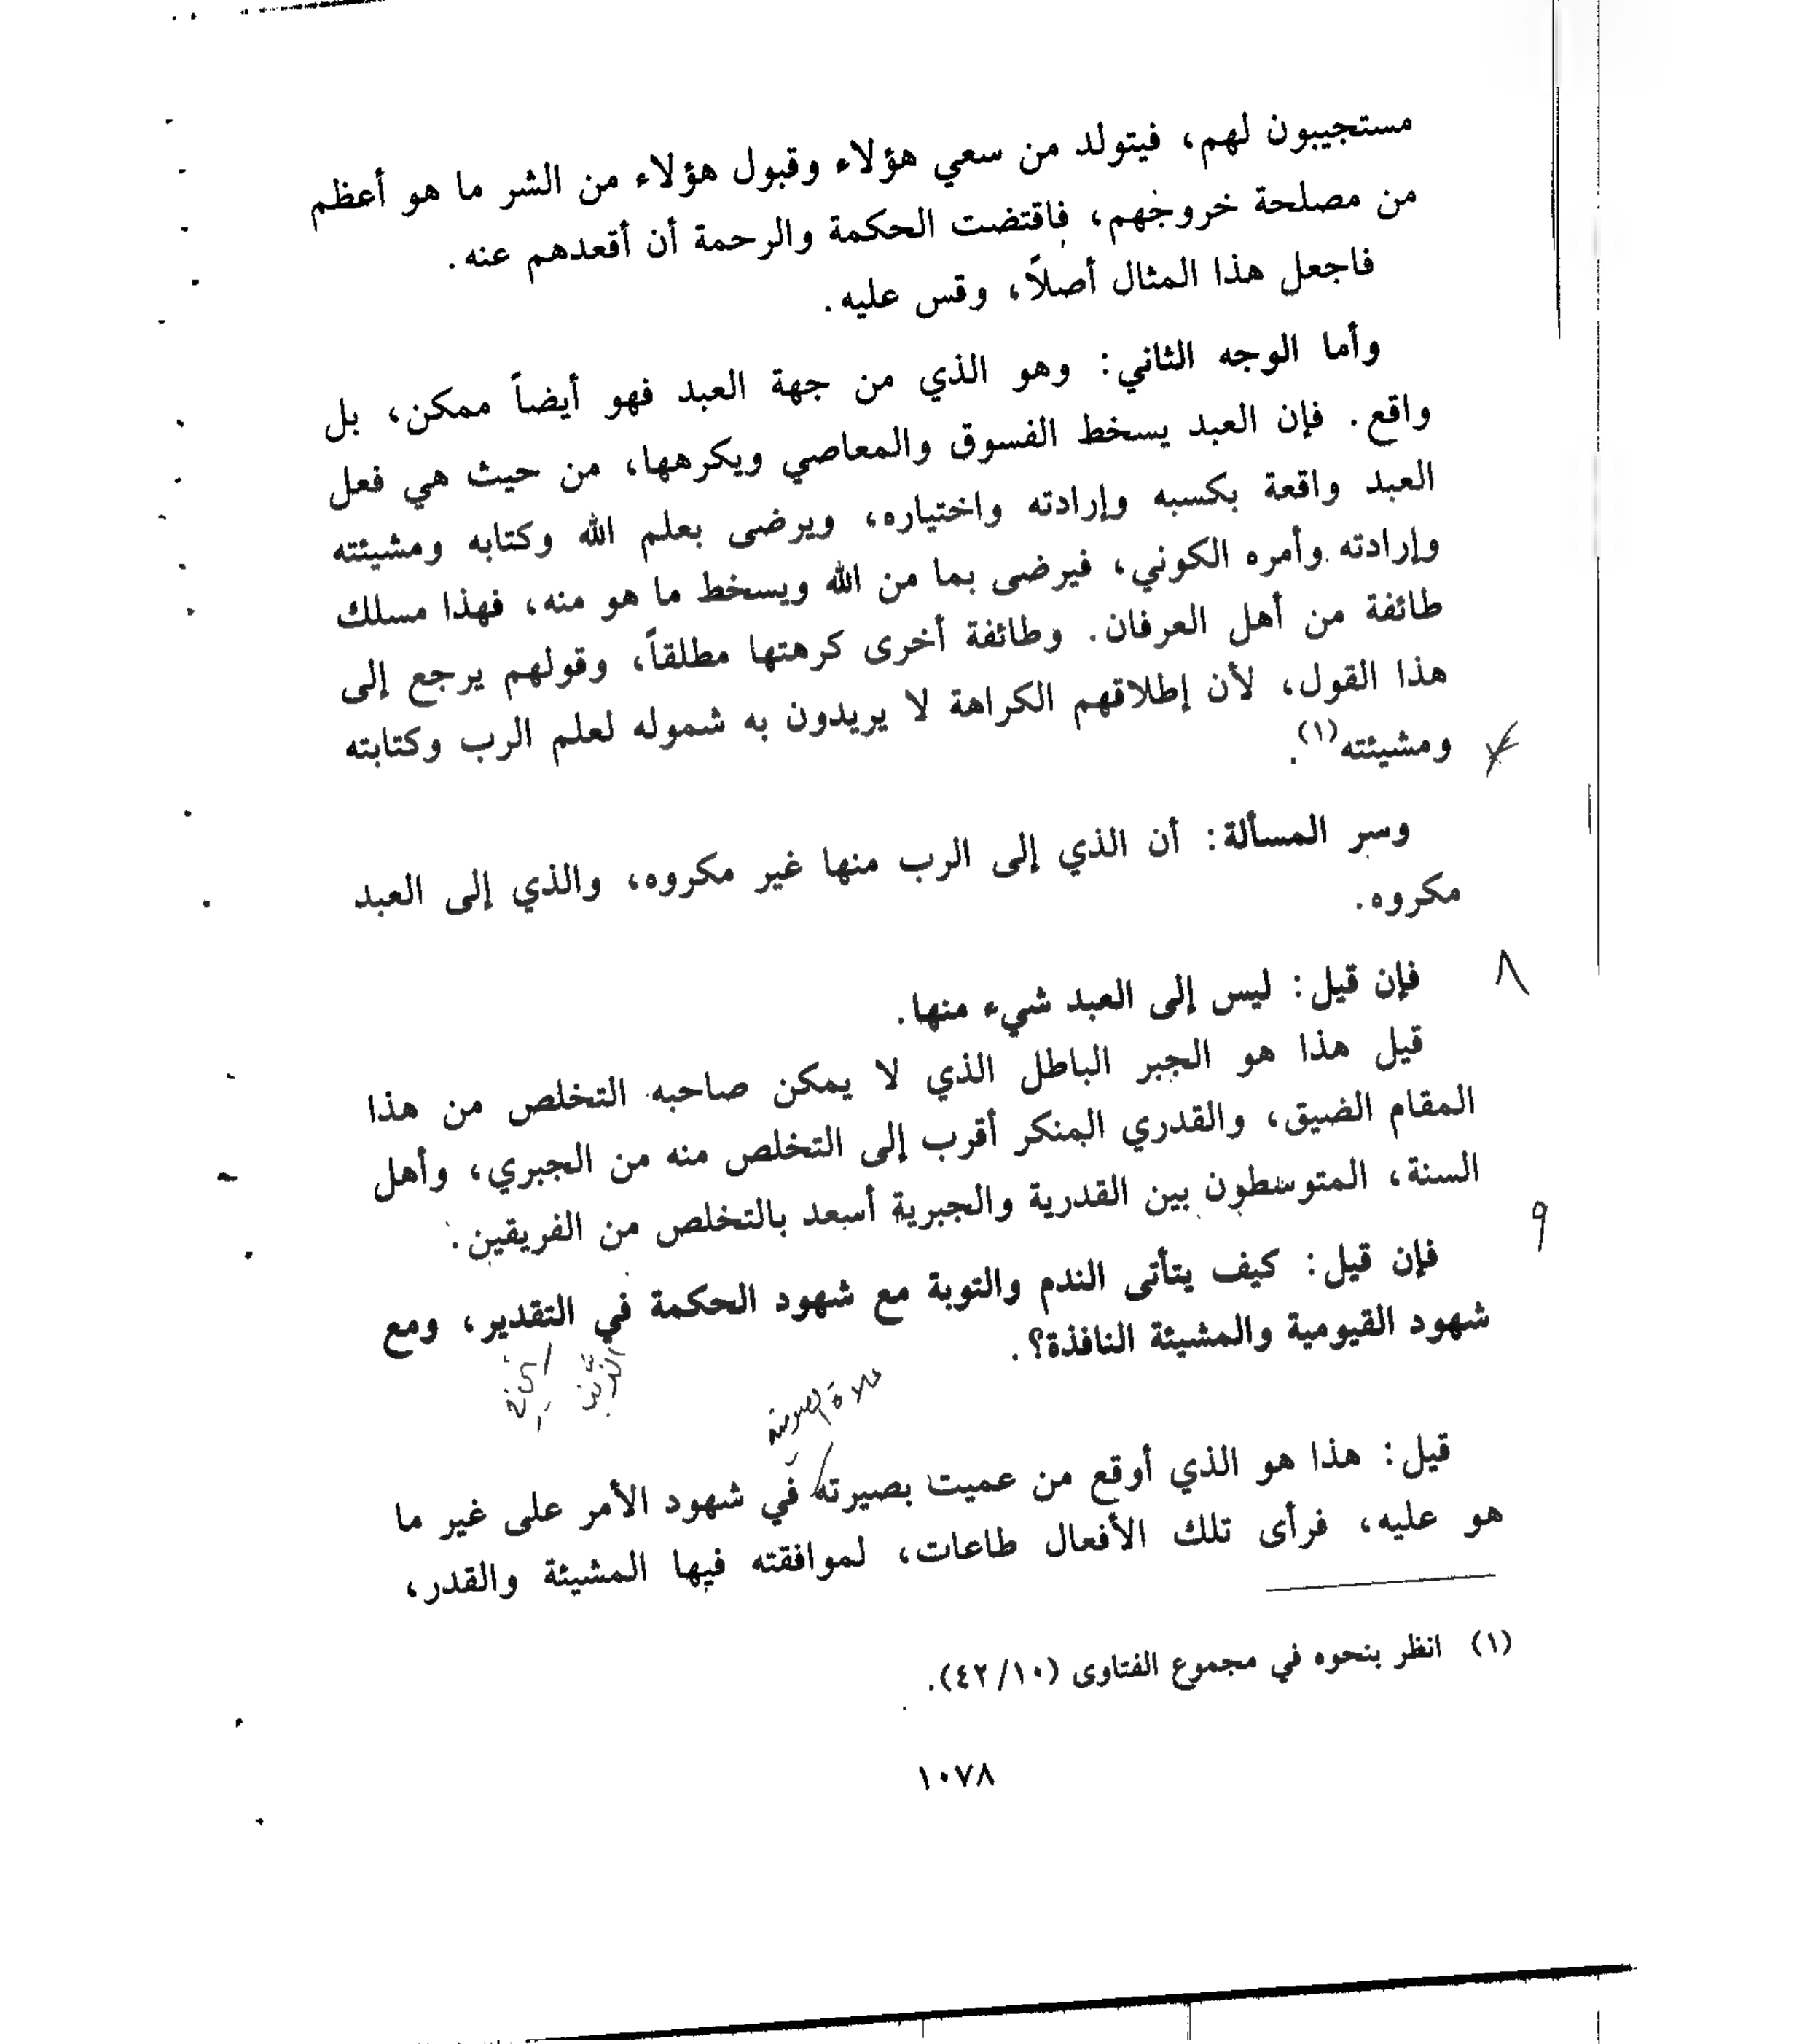 مستجيبون لهم، فيتولد من سعي هؤلاء وقبول هؤلاء من الشر ما هو أعظم
من مصلحة خروجهم، فاقتضت الحكمة والرحمة أن أقعدهم عنه.
فاجعل هذا المثال أصلاً، وقس عليه.
وأما الوجه الثاني: وهو الذي من جهة العبد فهو أيضاً ممكن، بل
واقع. فإن العبد يسخط الفسوق والمعاصي ويكرهها، من حيث هي فعل
العبد واقعة بكسبه وإرادته واختياره، ويرضى بعلم الله وكتابه ومشيئته
وإرادته وأمره الكوني، فيرضى بما من الله ويسخط ما هو منه، فهذا مسلك
طائفة من أهل العرفان. وطائفة أخرى كرهتها مطلقاً، وقولهم يرجع إلى
هذا القول، لأن إطلاقهم الكراهة لا يريدون به شموله لعلم الرب وكتابته
ومشيئته(١).
وسر المسألة: أن الذي إلى الرب منها غير مكروه، والذي إلى العبد
مكروه.
٨
فإن قيل: ليس إلى العبد شيء منها.
قيل هذا هو الجبر الباطل الذي لا يمكن صاحبه التخلص من هذا
المقام الضيق، والقدري المنكر أقرب إلى التخلص منه من الجبري، وأهل
السنة، المتوسطون بين القدرية والجبرية أسعد بالتخلص من الفريقين.
٩
فإن قيل: كيف يتأتى الندم والتوبة مع شهود الحكمة في التقدير، ومع
شهود القيومية والمشيئة النافذة؟.
قيل: هذا هو الذي أوقع من عميت بصيرته في شهود الأمر على غير ما
هو عليه، فرأى تلك الأفعال طاعات، لموافقته فيها المشيئة والقدر،
(١) انظر بنحوه في مجموع الفتاوى (٤٢/١٠).
١٠٧٨